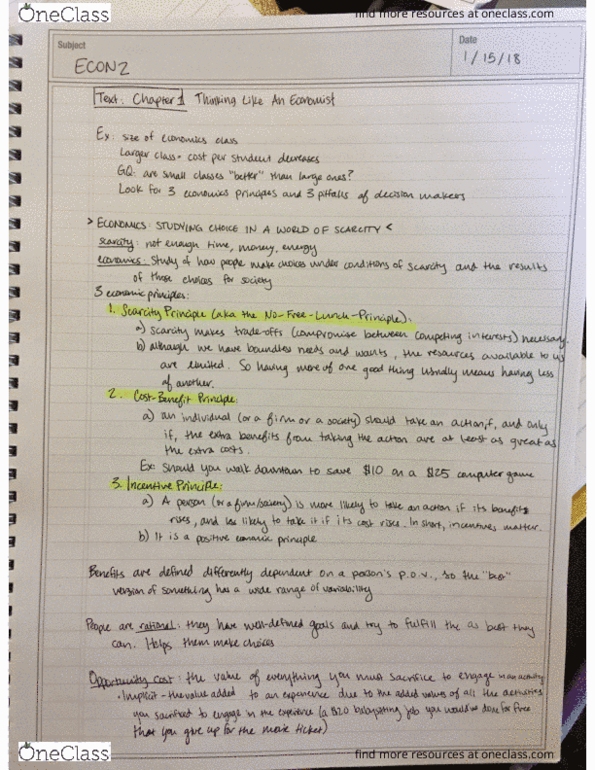 OneClass
find more resources at oneclass.com
Subject
Date
ECON2
1/15/18
Text: Chapter 1 Thinking Like An Economist
Ex: size of economics class
Larger class = cost per student decreases
GQ: are small classes "better" than large ones?
Look for 3 economics principles and 3 pitfalls of decision makers
> ECONOMICS: STUDYING CHOICE IN A WORLD OF SCARCITY <
scarcity: not enough time, money, energy
economics: Study of how people make choices under conditions of scarcity and the results
of those choices for society
3 economic principles:
1. Scarcity Principle (aka the No-Free-Lunch-Principle):
a) scarcity makes trade-offs (compromise between competing interests) necessary
b) although we have boundless needs and wants, the resources available to us
are limited. So having more of one good thing usually means having less
of another.
2. Cost-Benefit Principle:
a) an individual (or a firm or a society) should take an action if, and only
if, the extra benefits from taking the action are at least as great as
the extra costs.
Ex: Should you walk downtown to save $10 on a $25 computer game
3. Incentive Principle:
a) A person (or a firm/society) is more likely to take an action if its benefit
rises, and less likely to take it if its cost rises. In short, incentives matter.
b) It is a positive economic principle
Benefits are defined differently dependent on a person's p.o.v., so the "best"
version of something has a wide range of variability
People are rational: they have well-defined goals and try to fulfill the as best they
can. Helps them make choices
Opportunity cost: the value of everything you must sacrifice to engage in an activity
· Implicit - the value added to an experience due to the added values of all the activities
you sacrificed to engage in the experience (a $20 babysitting job you would've done for free
that you give up for the movie ticket)
OneClass
find more resources at oneclass.com